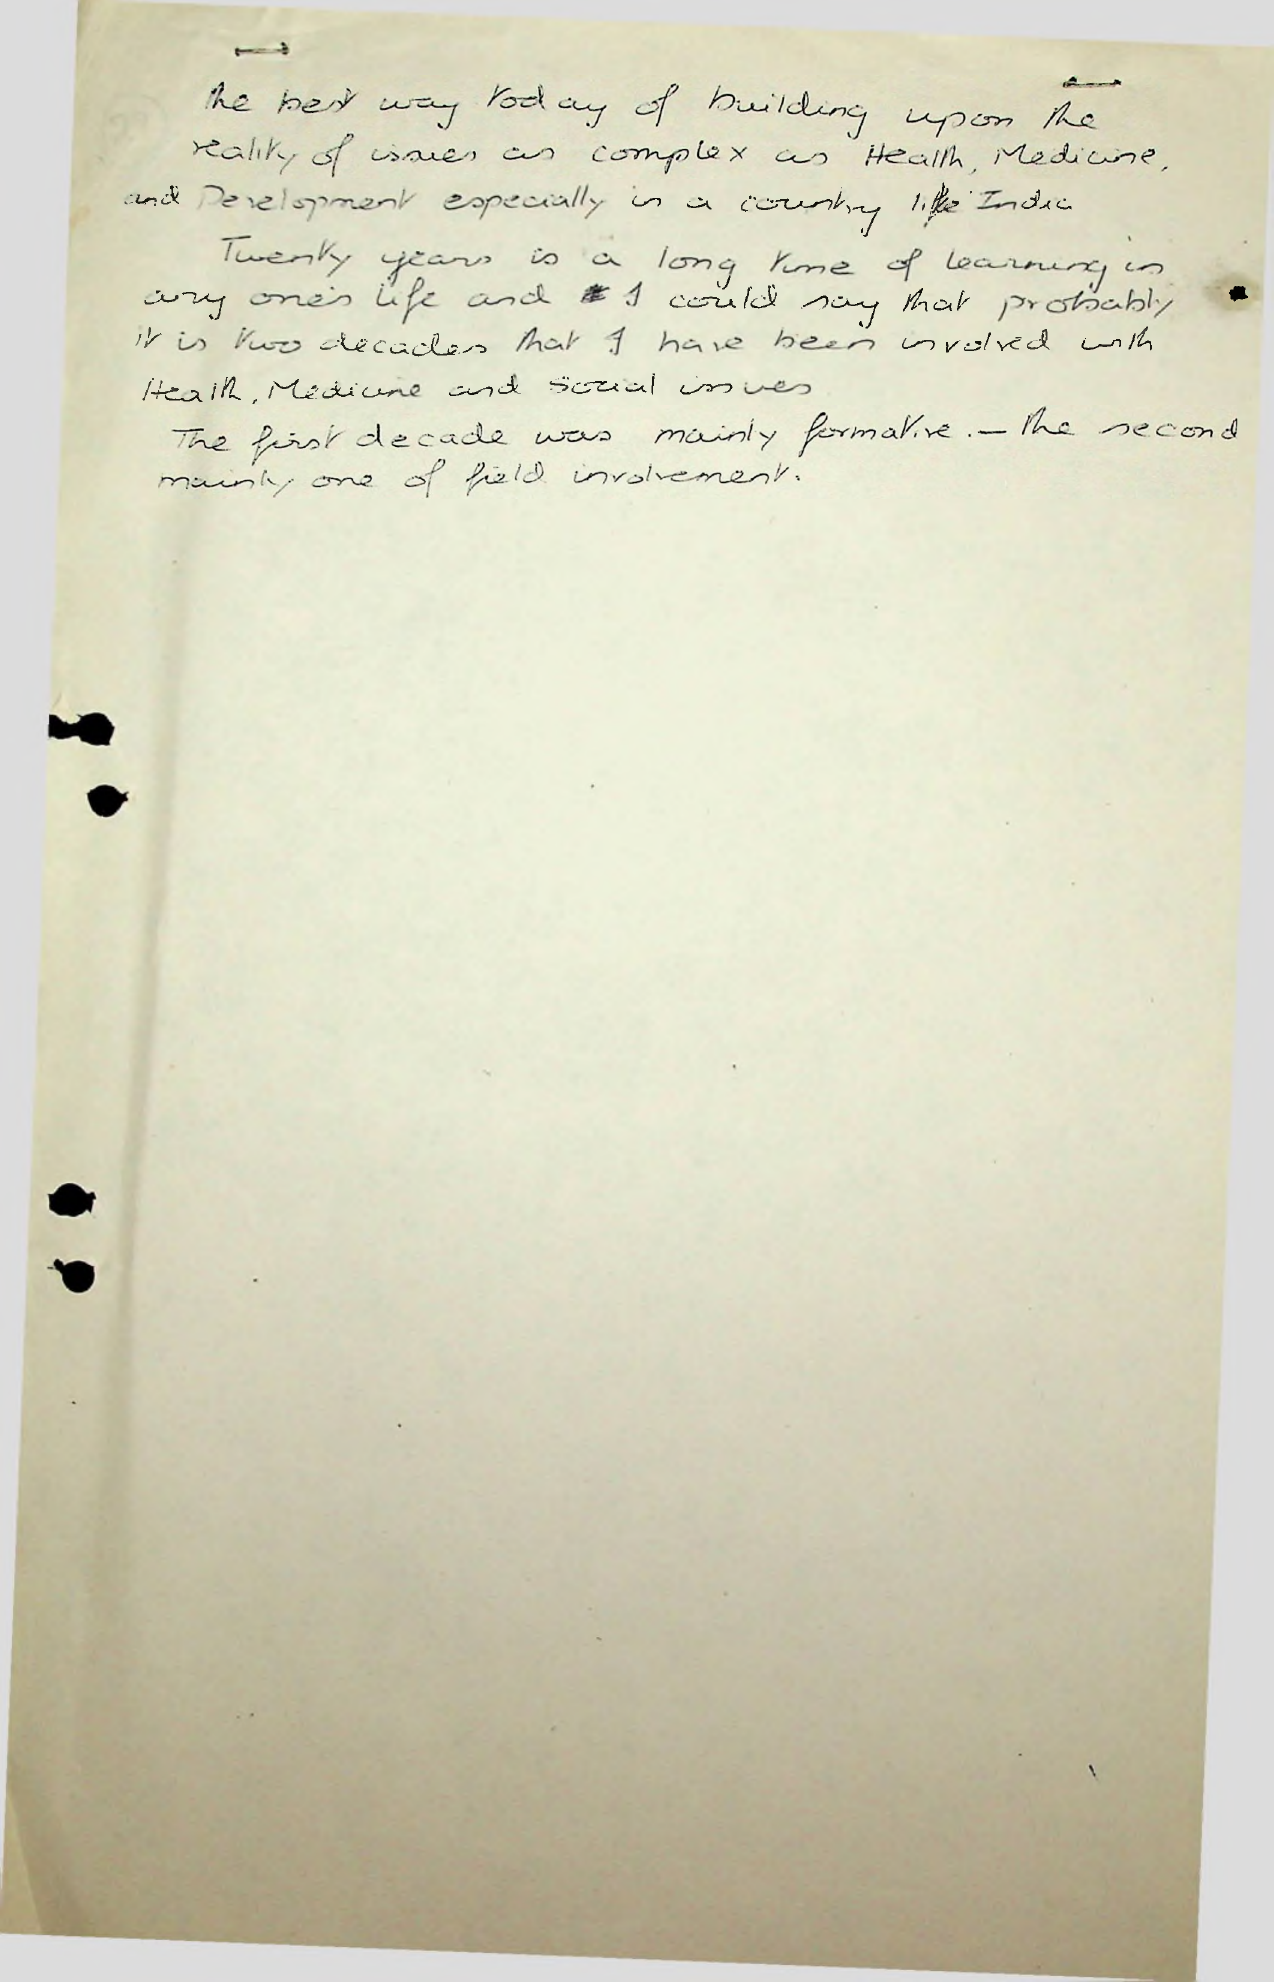 the best way today of building upon the
reality of issues as complex as Health, Medicine,
and Development especially in a country like India
Twenty years is a long time of learning in
any one's life and I could say that probably
it is two decades that I have been involved with
Health, Medicine and Social issues
The first decade was mainly formative. — the second
mainly one of field involvement.